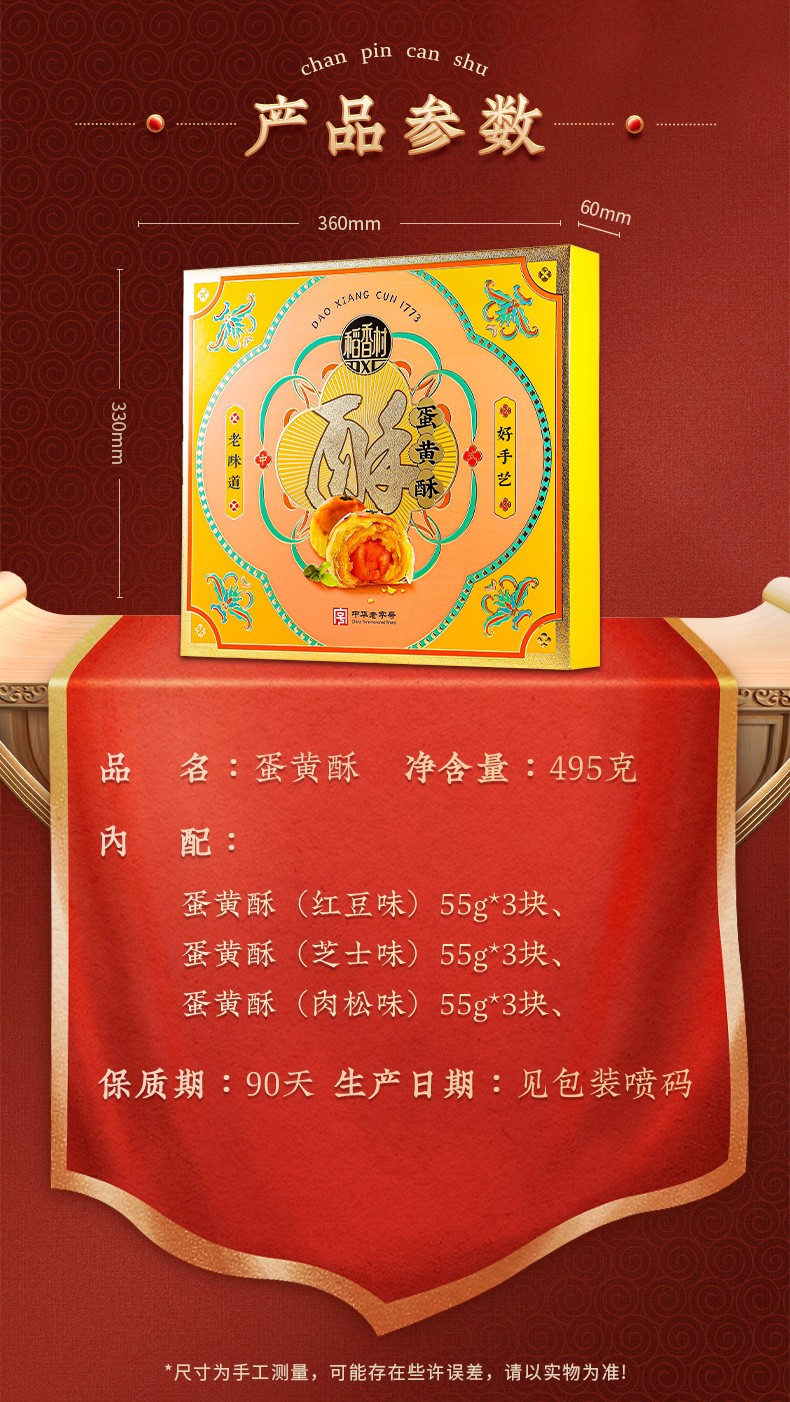 chan pin can shu
产品参数
360mm
60mm
330mm
DAO XIANG CUN 1773
稻香村
DXC
酥
蛋黄酥
老味道
中
式
好手艺
中华老字号
China Time-honored Brand
品 名：蛋黄酥 净含量：495克
内 配：
蛋黄酥（红豆味）55g*3块、
蛋黄酥（芝士味）55g*3块、
蛋黄酥（肉松味）55g*3块、
保质期：90天 生产日期：见包装喷码
*尺寸为手工测量，可能存在些许误差，请以实物为准!